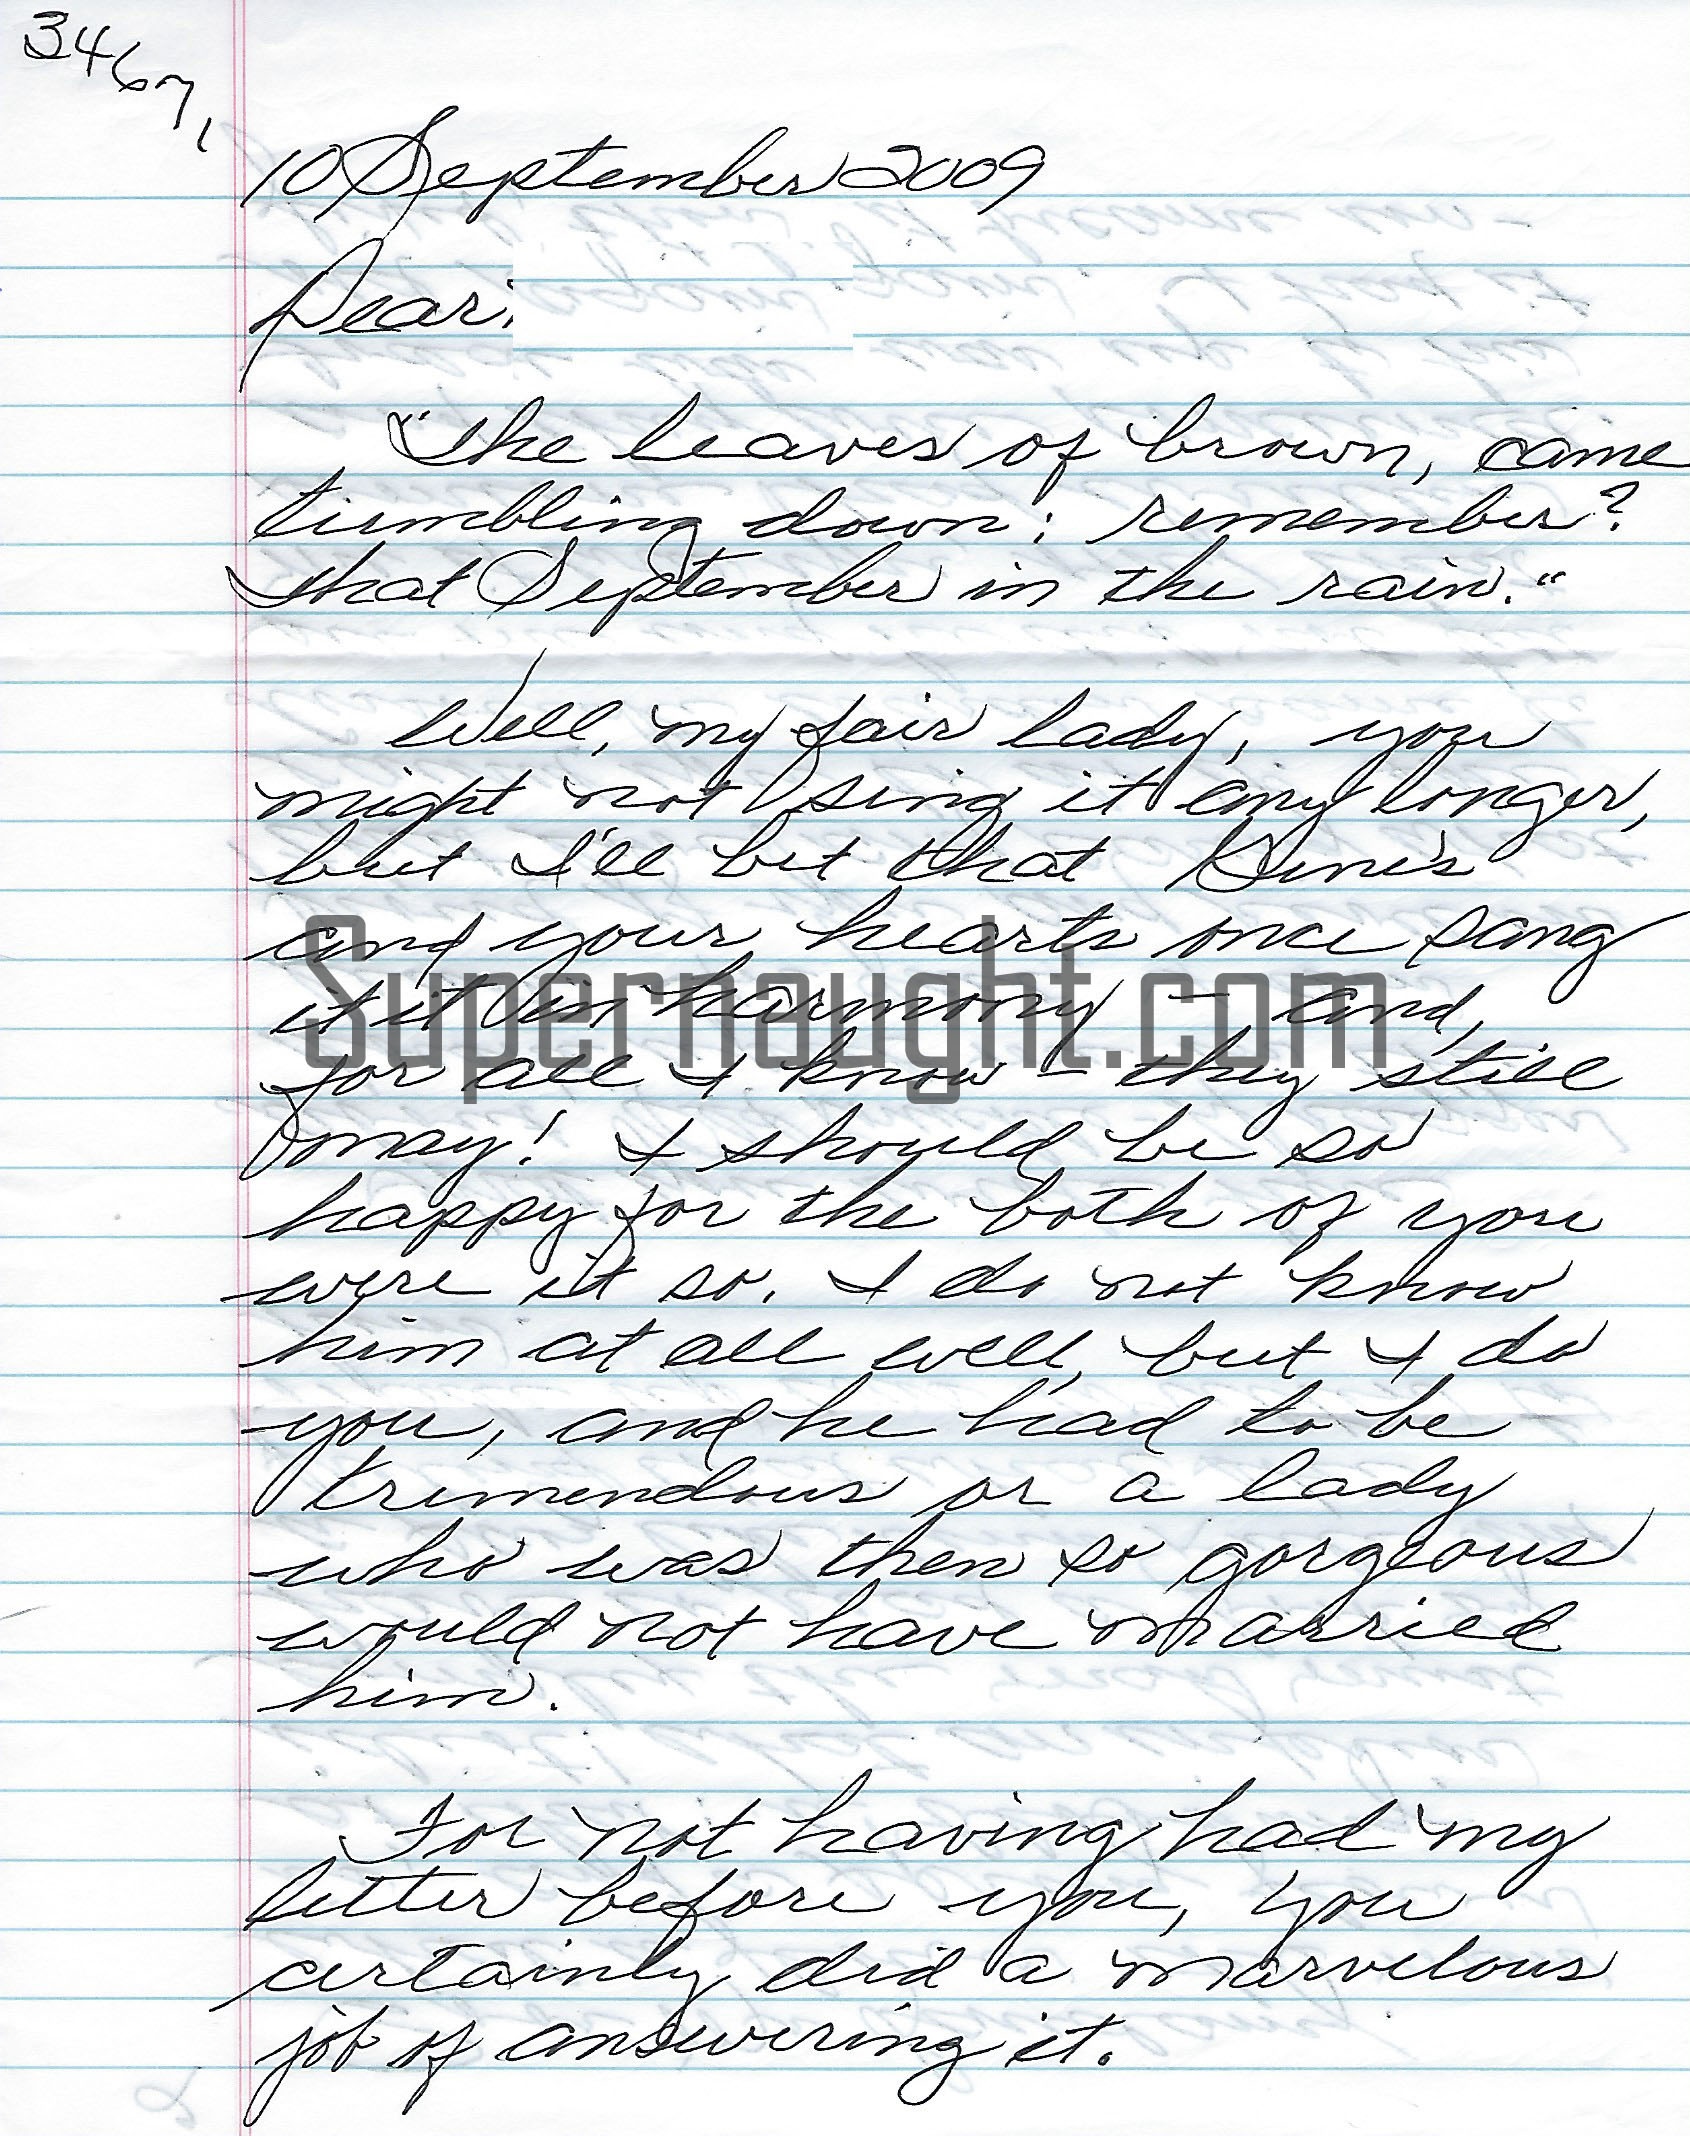 3467,
10 September 2009
Dear
"The leaves of brown, came
tumbling down: remember?
that September in the rain."
Well, my fair lady, you
might not sing it any longer,
but I'll bet that Gene's
and your hearts once sang
it it in harmony - and,
for all I know - they still
may! I should be so
happy for the both of you
were it so. I do not know
him at all well, but I do
you, and he had to be
tremendous or a lady
who was then so gorgeous
would not have married
him.
For not having had my
letter before you, you
certainly did a marvelous
job of answering it.
Supernaught.com